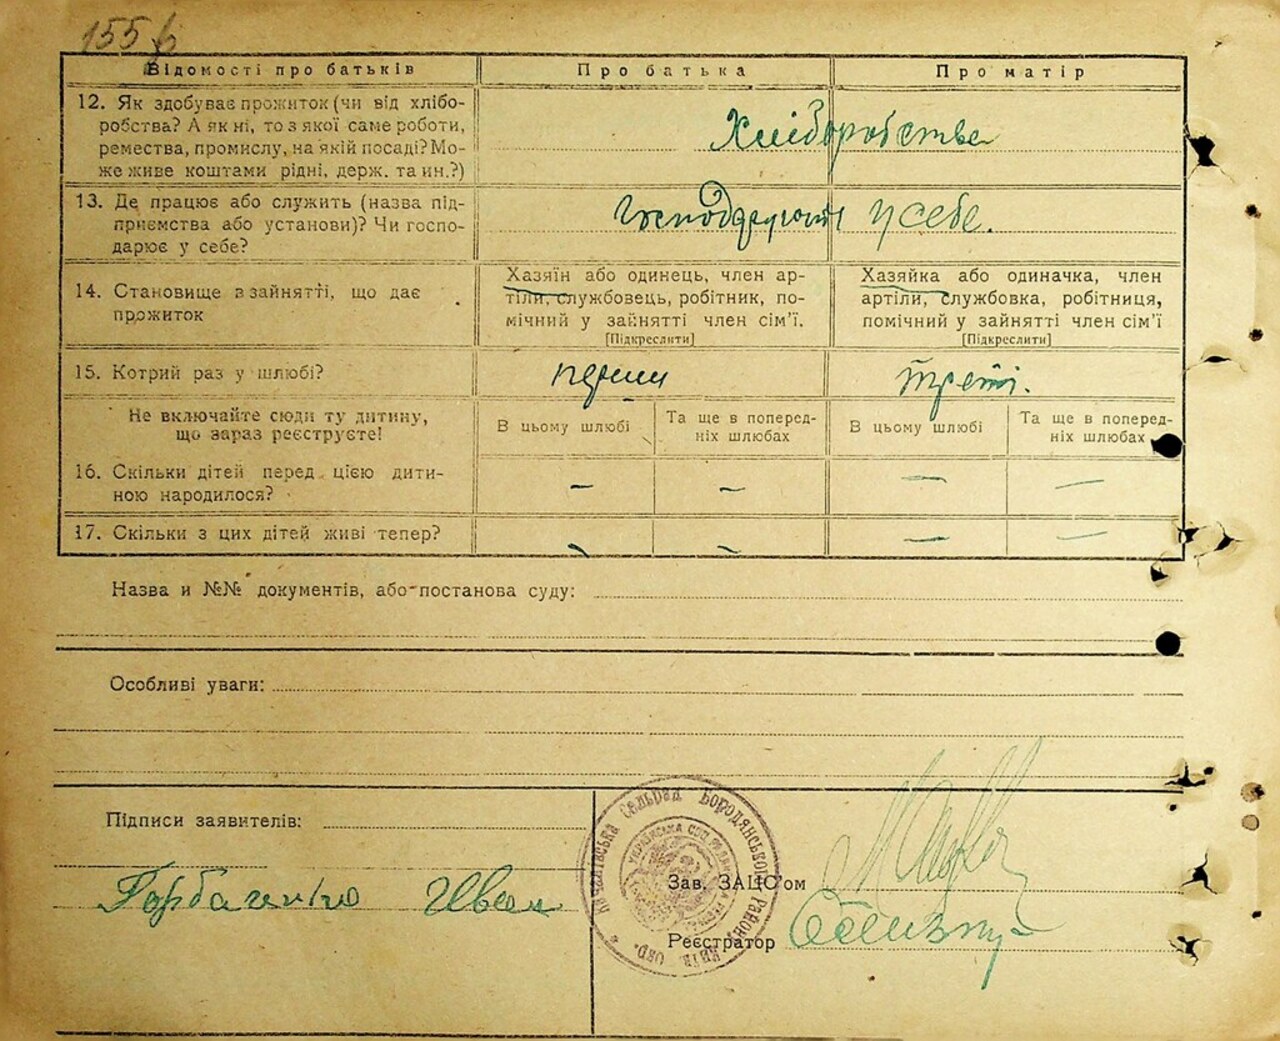 155
Відомості про батьків
Про батька
Про матір
12. Як здобуває прожиток (чи від хлібо-
робства? А як ні, то з якої саме роботи,
ремества, промислу, на якій посаді? Мо-
же живе коштами рідні, держ. та ин.?)
Хліборобства
13. Де працює або служить (назва під-
приємства або установи)? Чи госпо-
дарює у себе?
у себе.
14. Становище в зайнятті, що дає
прожиток
Хазяїн або одинець, член ар-
тіли, службовець, робітник, по-
мічний у зайнятті член сім'ї.
[Підкреслити]
Хазяйка або одиначка, член
артіли, службовка, робітниця,
помічний у зайнятті член сім'ї
[Підкреслити]
15. Котрий раз у шлюбі?
треті.
Не включайте сюди ту дитину,
що зараз реєструєте!
В цьому шлюбі
Та ще в поперед-
ніх шлюбах
В цьому шлюбі
Та ще в поперед-
ніх шлюбах
16. Скільки дітей перед цією дити-
ною народилося?
– – – –
17. Скільки з цих дітей живі тепер?
– – – –
Назва и №№ документів, або постанова суду:
Особливі уваги:
Підписи заявителів:
Горбаченко Иван
Сельрад Бородянського Район.
Зав. ЗАЦС'ом
Реєстратор